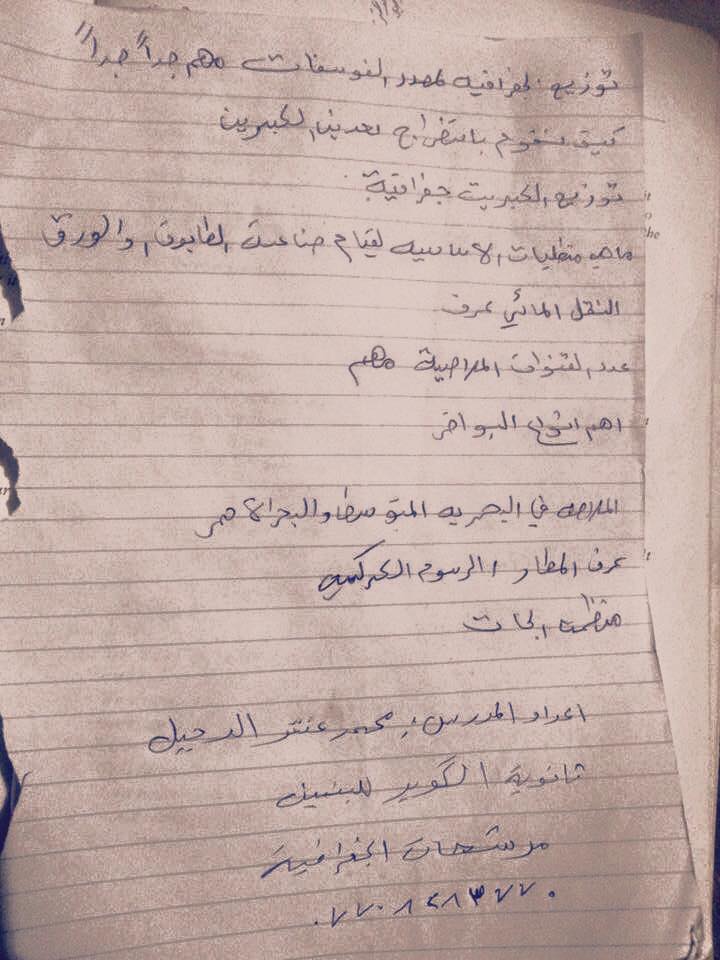 توزيع الجغرافيه لمصدر الفوسفات مهم جداً جداً
كيف نقوم باستخراج تعدين الكبريت
توزيع الكبريت جغرافية
ماهي متطلبات الاساسيه لقيام صناعة الصابون والورق
النقل المائي عرف
عدد القنوات الملاحية مهم
اهم انواع البواخر
الملاحه في البحريه المتوسط والبحر الاحمر
عرف المطار / الرسوم الكمركيه
منظمة الجات
اعداد المدرس: محمد عنتر الدخيل
ثانوية الگوير للبنين
مرشحات الجغرافية